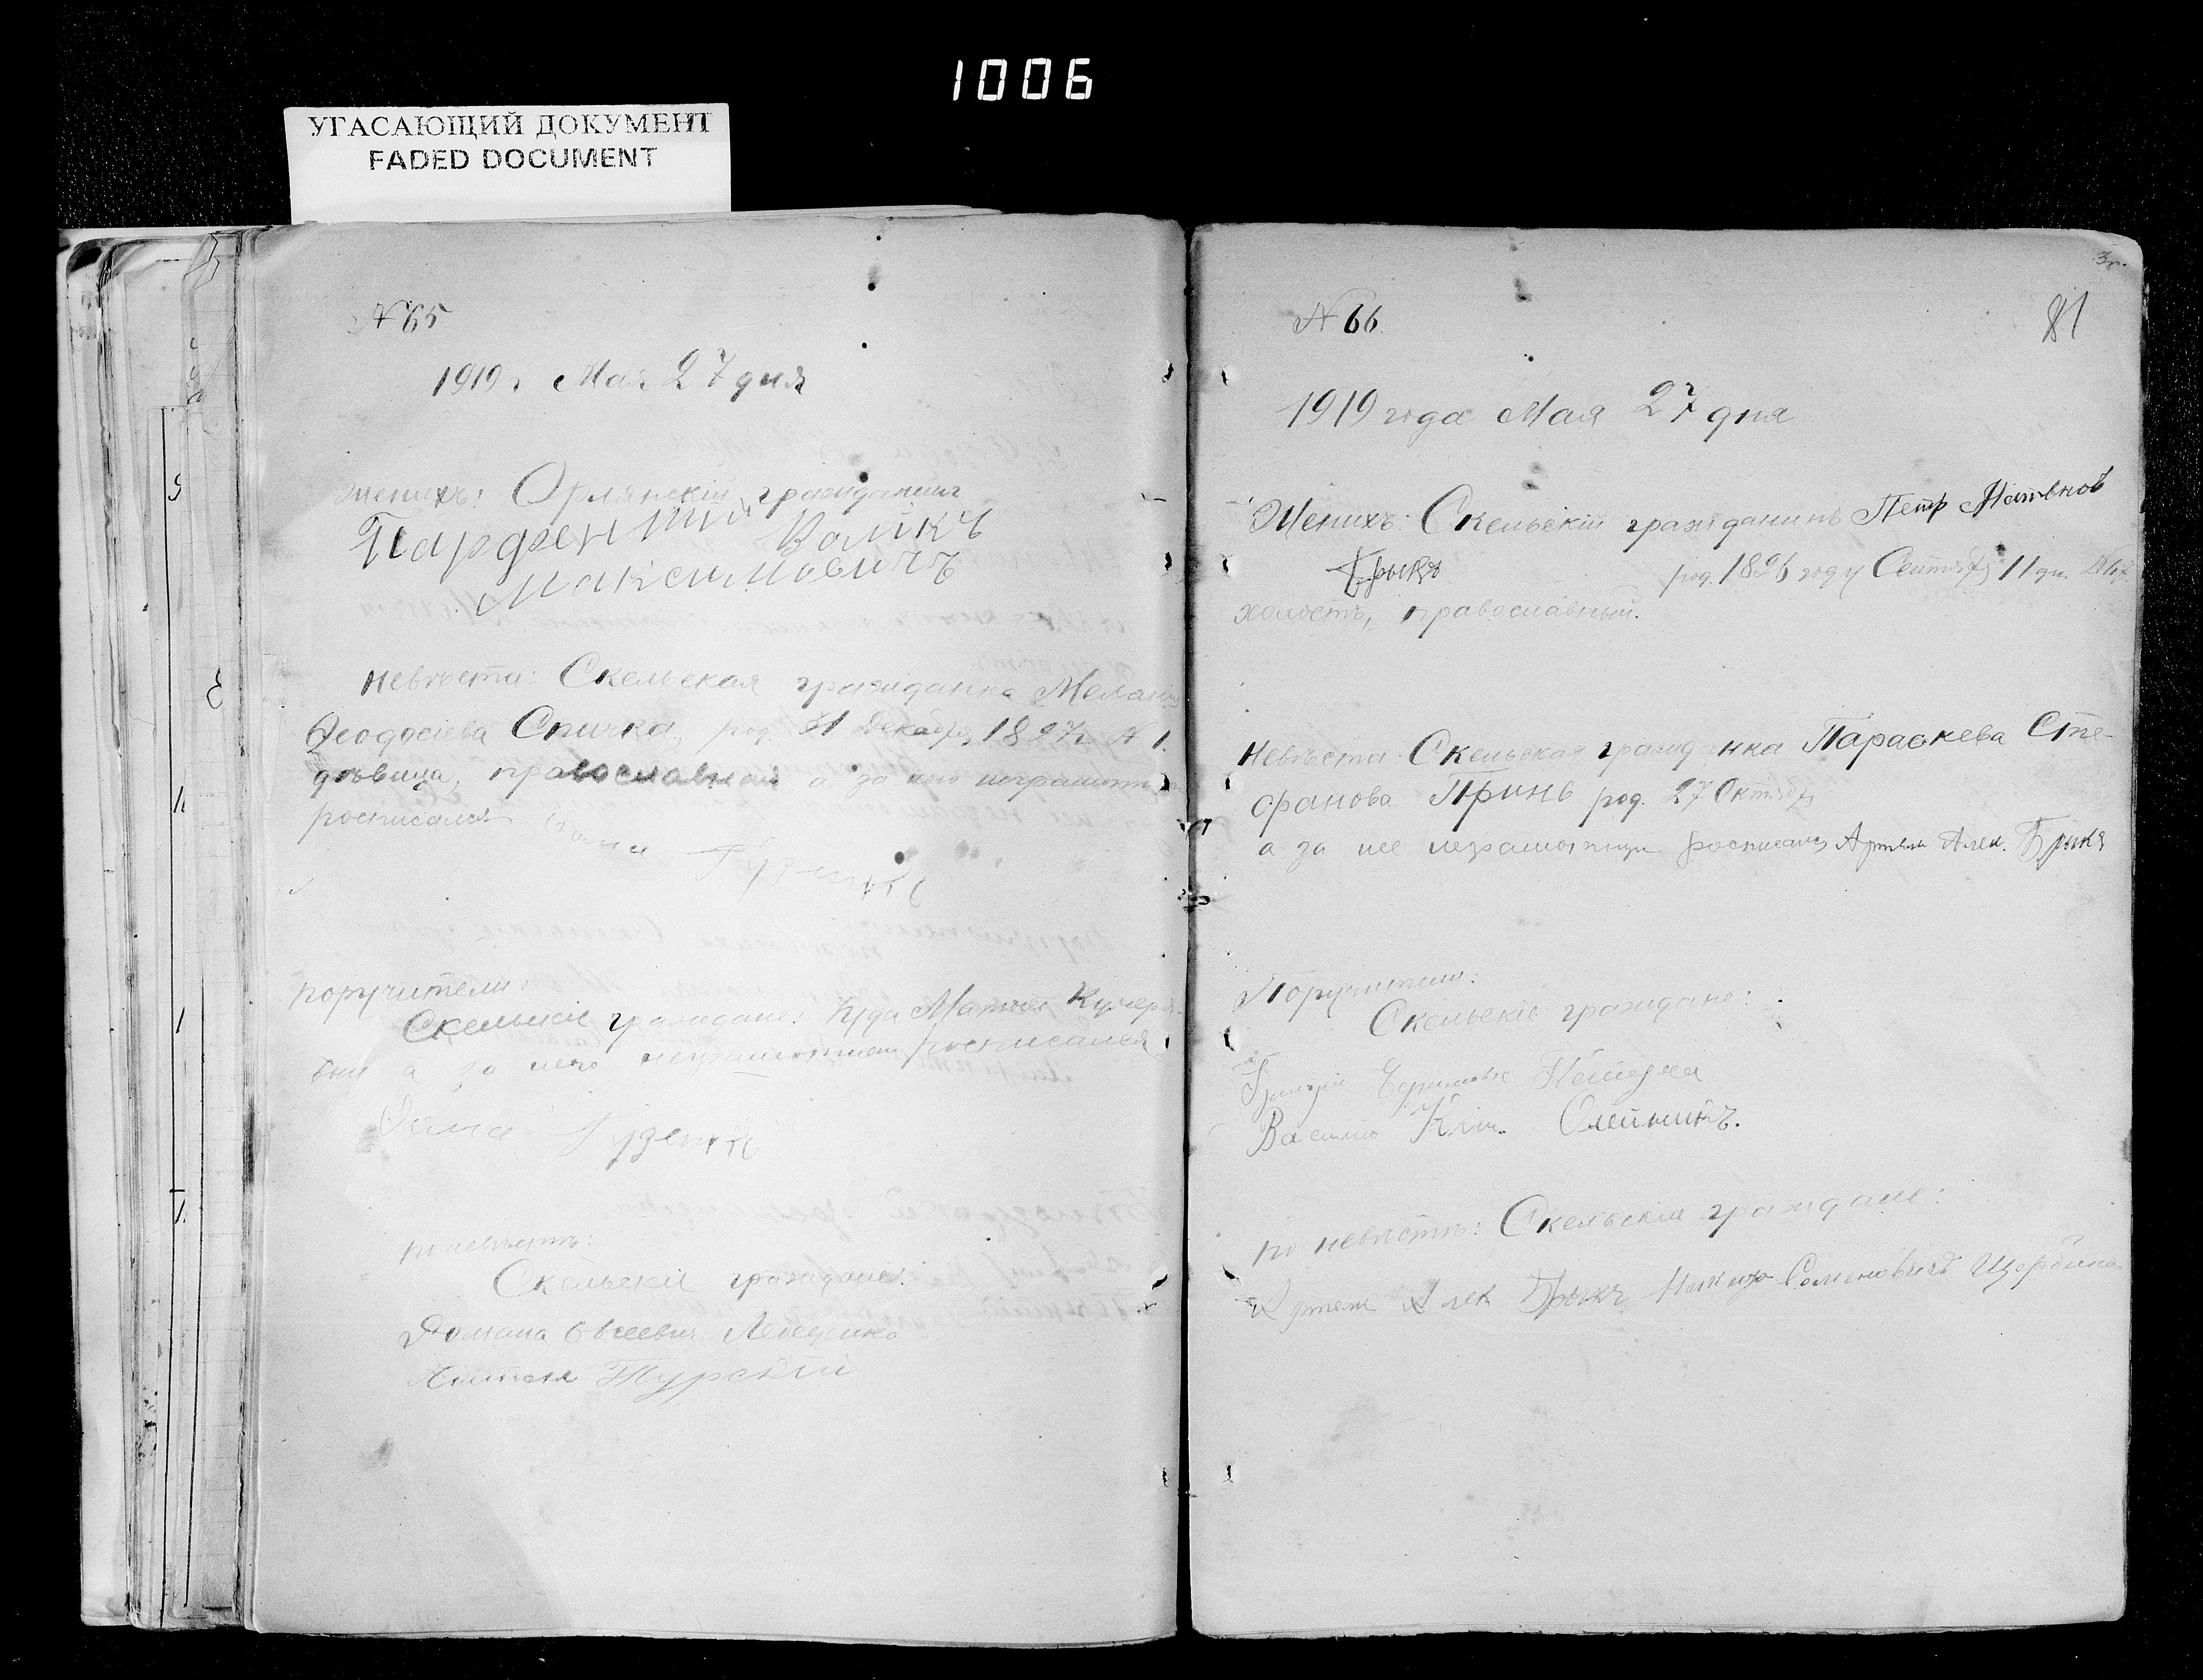 1006
УГАСАЮЩИЙ ДОКУМЕНТ
FADED DOCUMENT
N 65
1919 г Мая 27 дня
Женихъ: Орлянскій гражданин
Парфентий Воликъ
Максимовичъ
Невѣста: Скельская гражданка Мелания
Феодосіева Спичка, род. 31 Декабр. 1897 г. N 1.
дѣвица, православная а за нею неграмотн
росписался
поручители:
Скельскіе граждане: Іуда Матвеев Кучеря-
вый а за него неграмотнаго росписался
по невѣстѣ:
Скельскіе граждане:
Романа Овсеевич
Антон Турскій
N 66
81
1919 года Мая 27 дня
Женихъ: Скельскій гражданинъ Петр Матвѣов
Брыкъ род. 1896 году Сентябр 11 дн.
холостъ, православный.
Невѣста: Скельская гражданка Параскева Сте-
фанова Принь род. 27 Октябр
а за нее неграмотную росписался Артем Алек. Брыкъ
Поручители:
Скельскіе граждане:
Григорій Ефимовъ
Василій Клим. Олейникъ.
по невѣстѣ: Скельскія граждане:
Артем Алек Брыкъ Никита Семеновичъ Щербина